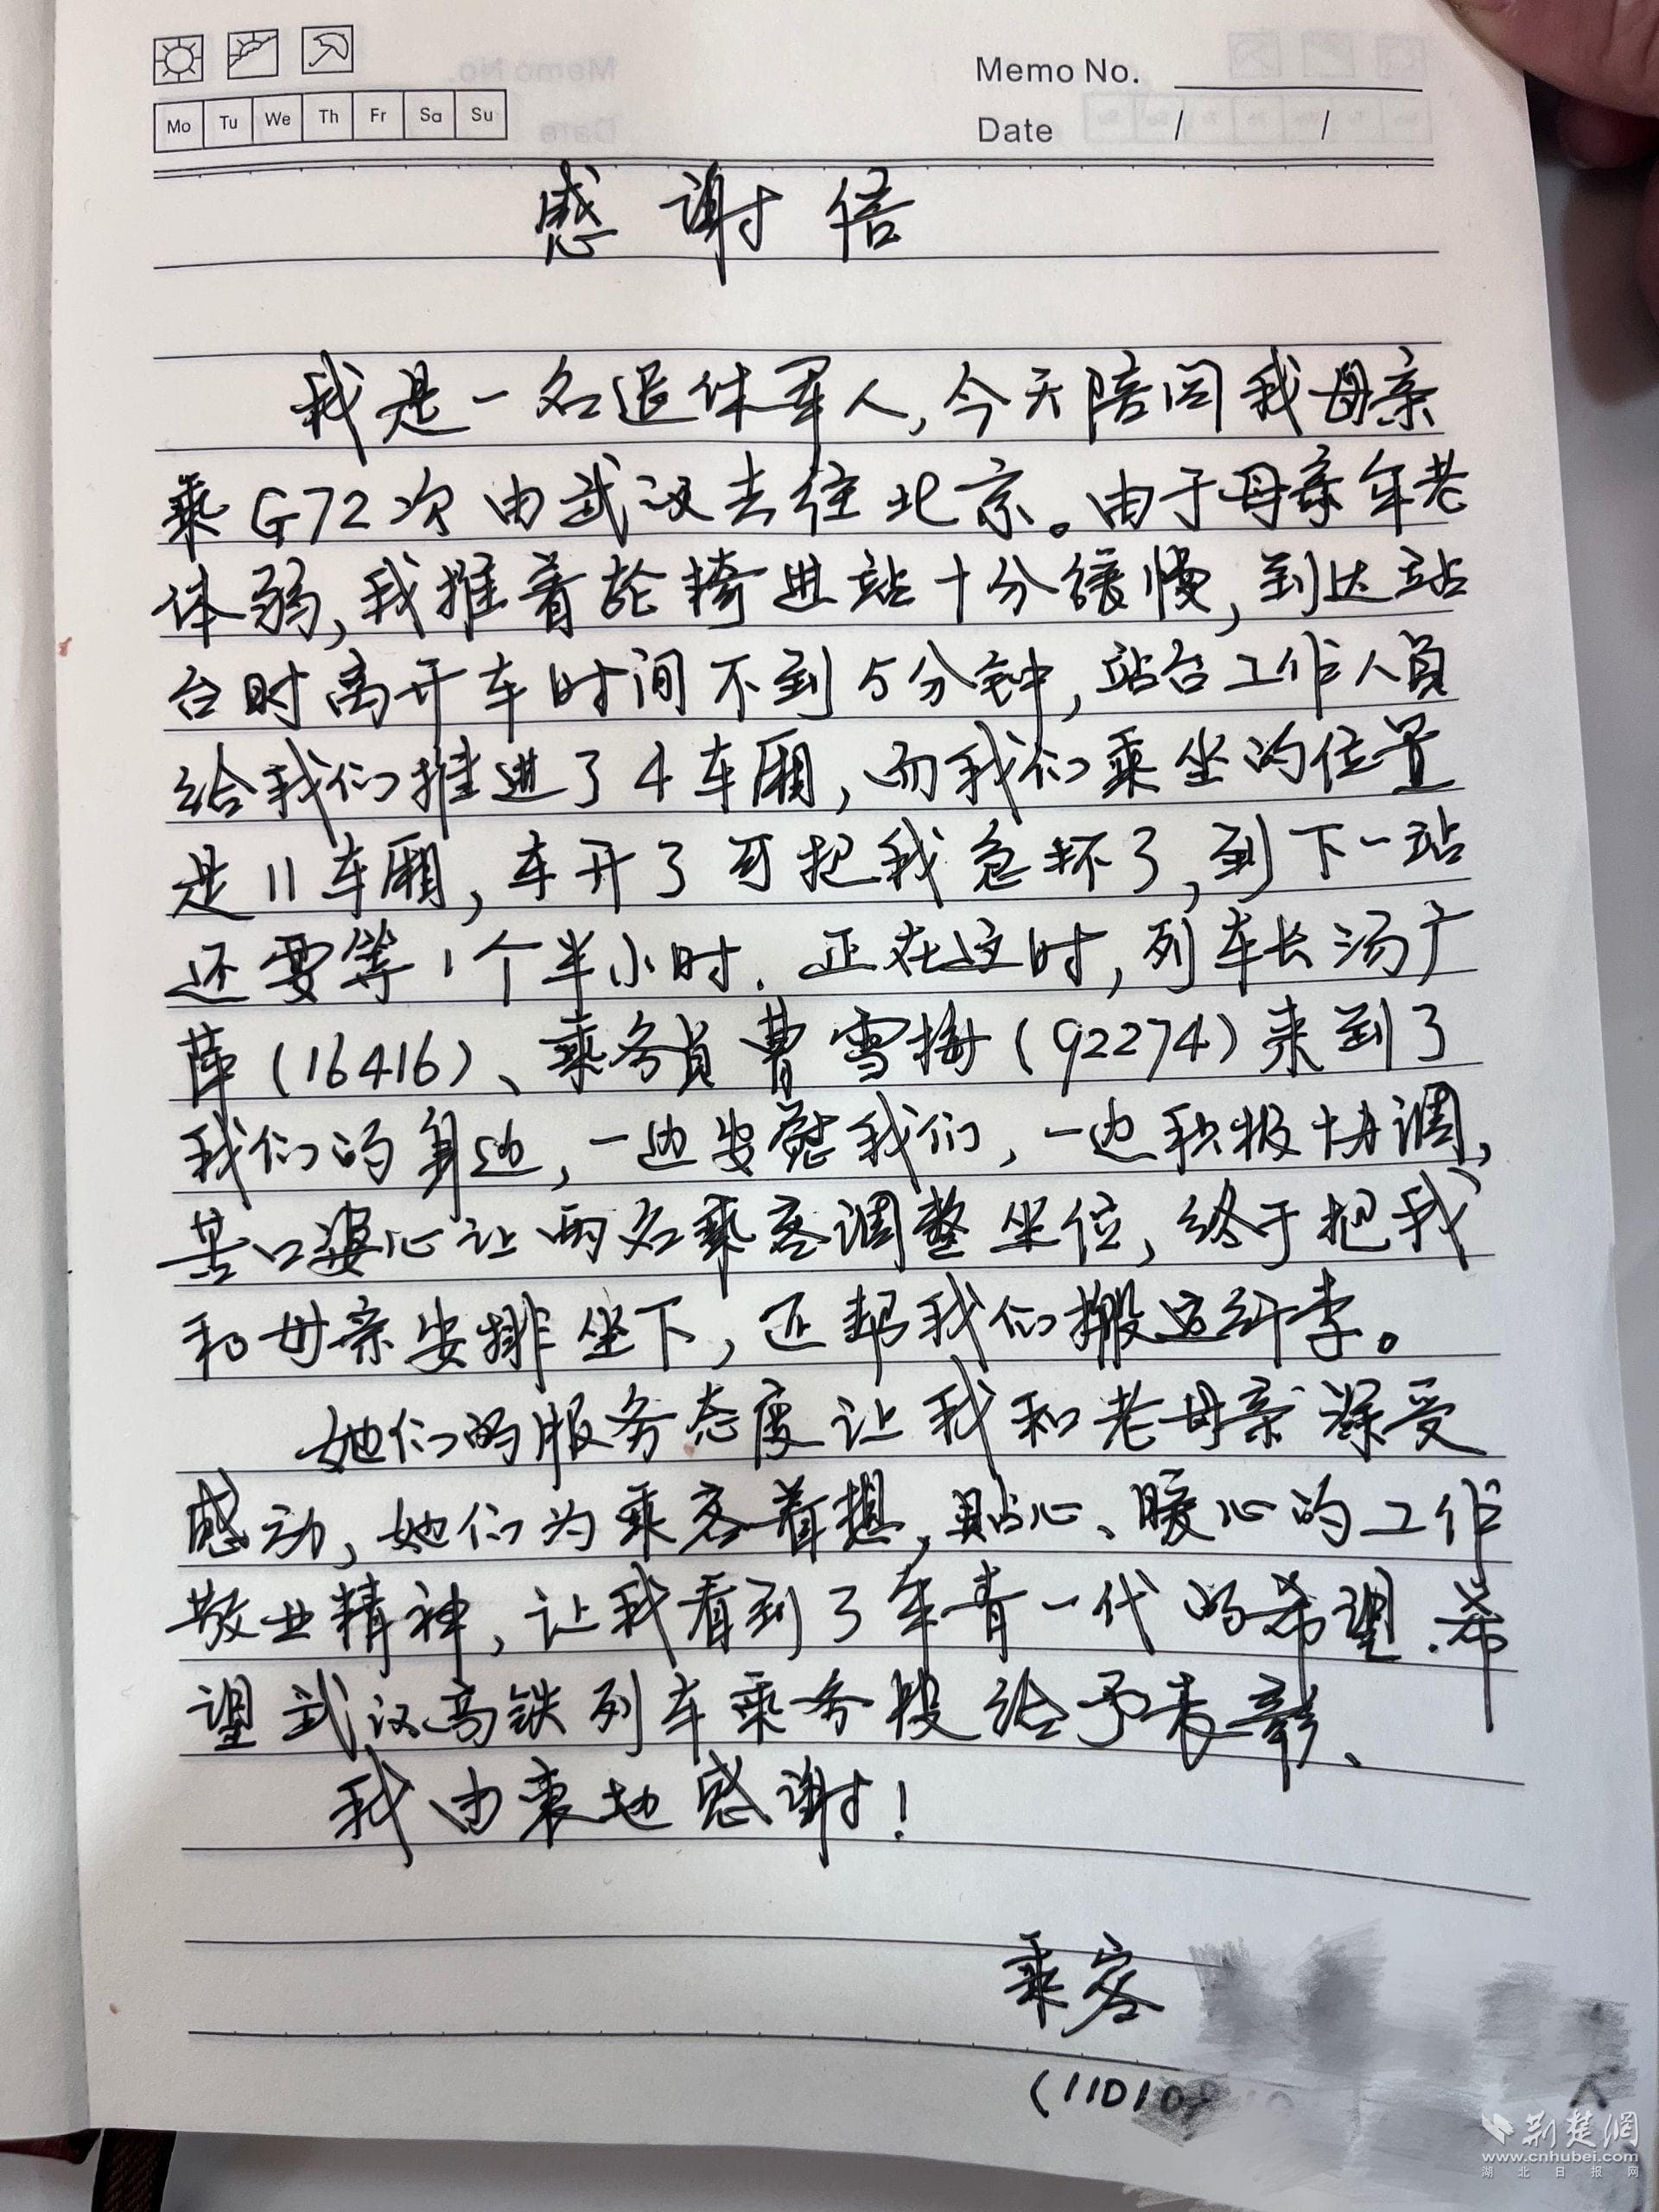 Memo No.
Mo Tu We Th Fr Sa Su
Date / /
感谢信
我是一名退休军人,今天陪同我母亲
乘G72次由武汉去往北京。由于母亲年老
体弱,我推着轮椅进站十分缓慢,到达站
台时离开车时间不到5分钟,站台工作人员
给我们推进了4车厢,而我们乘坐的位置
是11车厢,车开了可把我急坏了,到下一站
还要等1个半小时.正在这时,列车长汤广
萍(16416)、乘务员曹雪梅(92274)来到了
我们的身边,一边安慰我们,一边积极协调,
苦口婆心让两名乘客调整坐位,终于把我
和母亲安排坐下,还帮我们搬运行李。
她们的服务态度让我和老母亲深受
感动,她们为乘客着想,贴心、暖心的工作
敬业精神,让我看到了年青一代的希望.希
望武汉高铁列车乘务段给予表彰、
我由衷地感谢!
乘客
(110108
荆楚网
www.cnhubei.com
湖北日报网